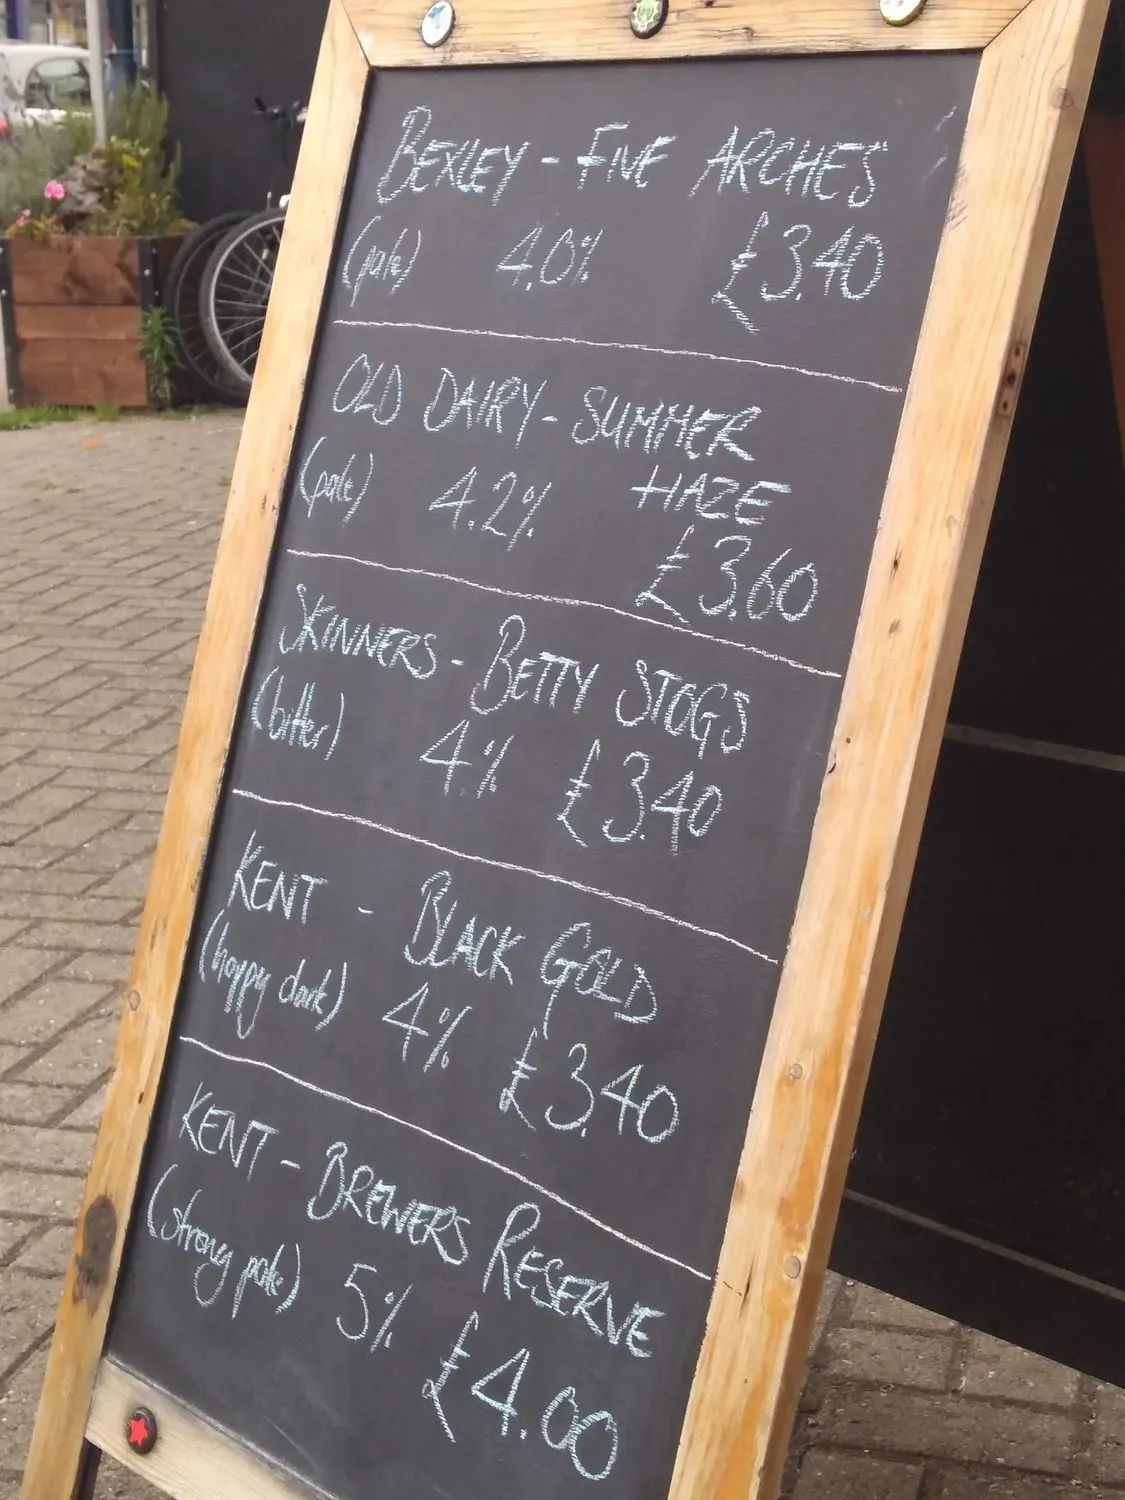 BEXLEY - FIVE ARCHES
(pale) 4.0% £3.40
OLD DAIRY - SUMMER
HAZE
(pale) 4.2%
£3.60
SKINNERS - BETTY STOGS
(bitter) 4% £3.40
KENT - BLACK GOLD
(hoppy dark) 4% £3.40
KENT - BREWERS RESERVE
(strong pale) 5% £4.00